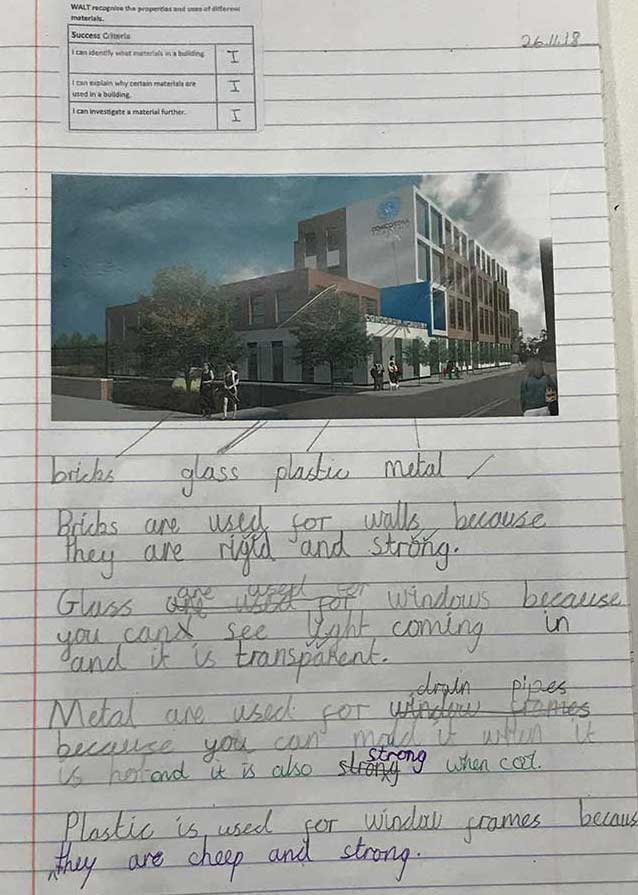 WALT recognise the properties and uses of different
materials.
Success Criteria
I can identify what materials in a building. I
I can explain why certain materials are
used in a building. I
I can investigate a material further. I
26.11.18
bricks glass plastic metal
Bricks are used for walls because
they are rigid and strong.
are used for
Glass are used for windows because
you can see light coming in
and it is transparent.
drain pipes
Metal are used for window frames
because you can mold it when it
strong
is hot and it is also strong when cool.
Plastic is used for window frames becaus
they are cheep and strong.